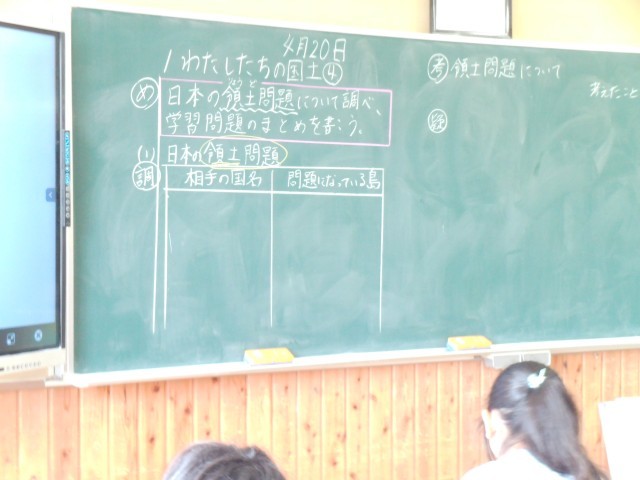 4月20日
1 わたしたちの国土④
め
りょうど
日本の領土問題について調べ、
学習問題のまとめを書こう。
(1) 日本の領土問題
調
相手の国名 問題になっている島
考 領土問題について
考えたこと